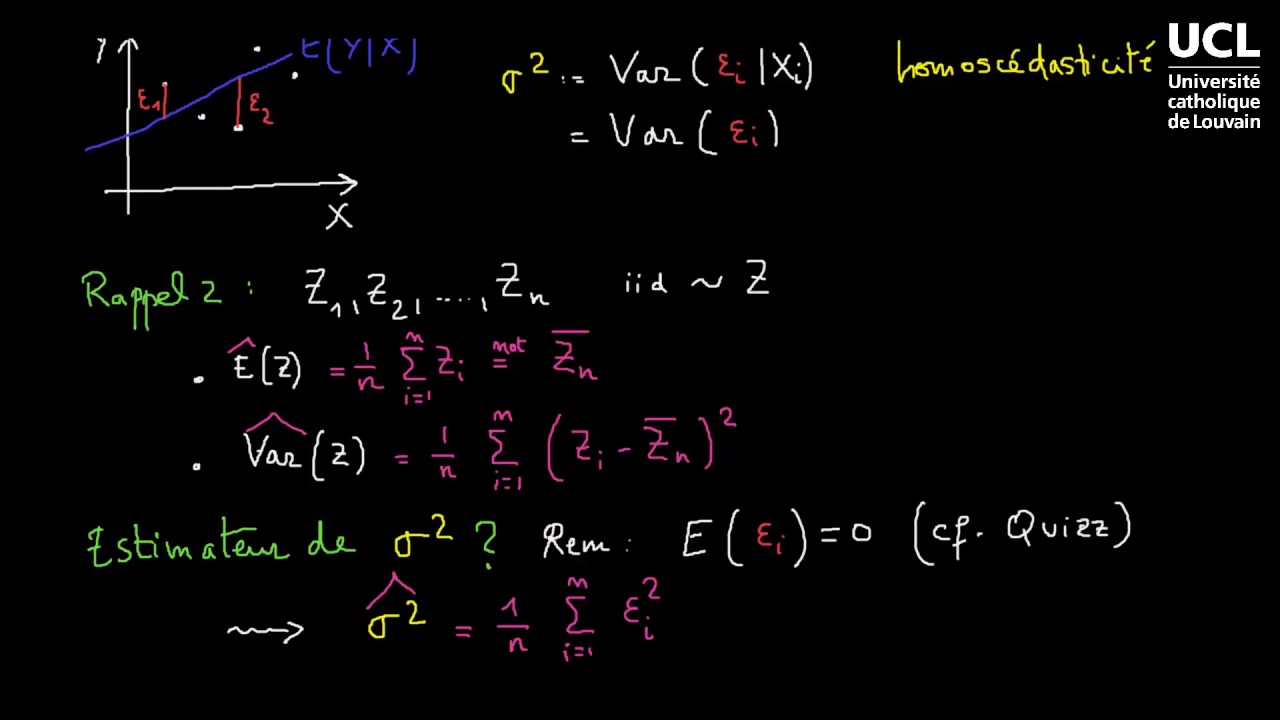 Y E(Y|X)
ε1 ε2
X
σ² := Var(εi|Xi) homoscédasticité
= Var(εi)
UCL
Université
catholique
de Louvain
Rappel 2 : Z1, Z2, ...., Zn iid ~ Z
• Ê(Z) = 1/n ∑_{i=1}^{n} Zi =^{not} Z̄n
• V̂ar(Z) = 1/n ∑_{i=1}^{n} (Zi - Z̄n)²
Estimateur de σ² ? Rem : E(εi) = 0 (cf. Quizz)
⟿ σ̂² = 1/n ∑_{i=1}^{n} εi²